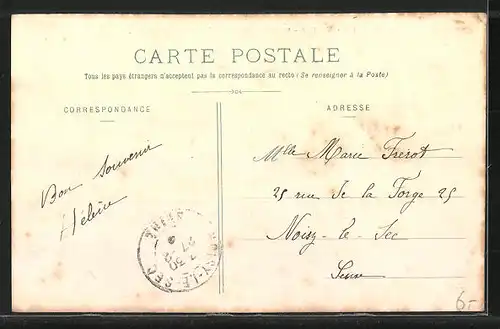 CARTE POSTALE
Tous les pays étrangers n'acceptent pas la correspondance au recto (Se renseigner à la Poste)
CORRESPONDANCE
ADRESSE
Bon souvenir
Hélène
Mlle Marie Frérot
25 rue de la Forge 25
Noisy-le-Sec
Seine
NOISY-LE-SEC
7 30
27
6-